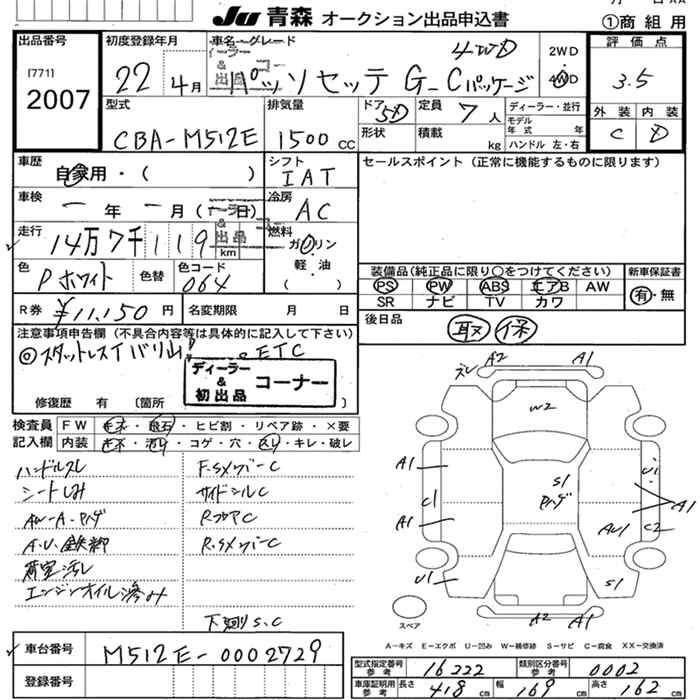 JU 青森 オークション出品申込書
①商組用
出品番号
[771]
2007
初度登録年月
22年4月
車名・グレード
パッソセッテ G_Cパッケージ
4WD
2WD
4WD
評価点
3.5
外装 内装
C D
型式
CBA-M512E
排気量
1500cc
ドア 5D
形状
定員 7人
積載 kg
ディーラー・並行
モデル年式 年
ハンドル 左・右
車歴
自家用・( )
シフト
IAT
車検
一年一月(一日)
冷房
AC
走行
14万7千119km
ディーラー & 初出品 コーナー
燃料
ガソリン
軽油
( )
色
Pホワイト
色替
色コード
064
R券
¥11,150円
名変期限 月 日
セールスポイント (正常に機能するものに限ります)
装備品(純正品に限り○をつけてください)
PS PW ABS エアB AW
SR ナビ TV カワ
新車保証書
有・無
後日品
取 保
注意事項申告欄 (不具合内容等は具体的に記入して下さい)
◎スタットレスTバリ山! ETC
ディーラー & 初出品 コーナー
修復歴 有 (箇所
検査員記入欄
FW キズ・飛石・ヒビ割・リペア跡・×要
内装 キズ・汚れ・コゲ・穴・スレ・キレ・破レ
ハンドルスレ
シートしみ
AW-A・Pハゲ
A.U.鉄粉
荷室汚レ
エンジンオイル滲み
F.SメンバーC
サイドシルC
RフロアC
R.SメンバーC
下廻りS.C
A2 A1
W2
A1
C1
A1
U1
S1
Pハゲ
U1
A1
AU1
C2
S1
A2 A1
スペア
A-キズ E-エクボ U-凹み W-補修跡 S-サビ C-腐食 XX-交換済
車台番号
M512E-0002729
登録番号
型式指定番号 参考 16222
類別区分番号 参考 0002
車庫証明用 参考 長さ 418cm 幅 169cm 高さ 162cm